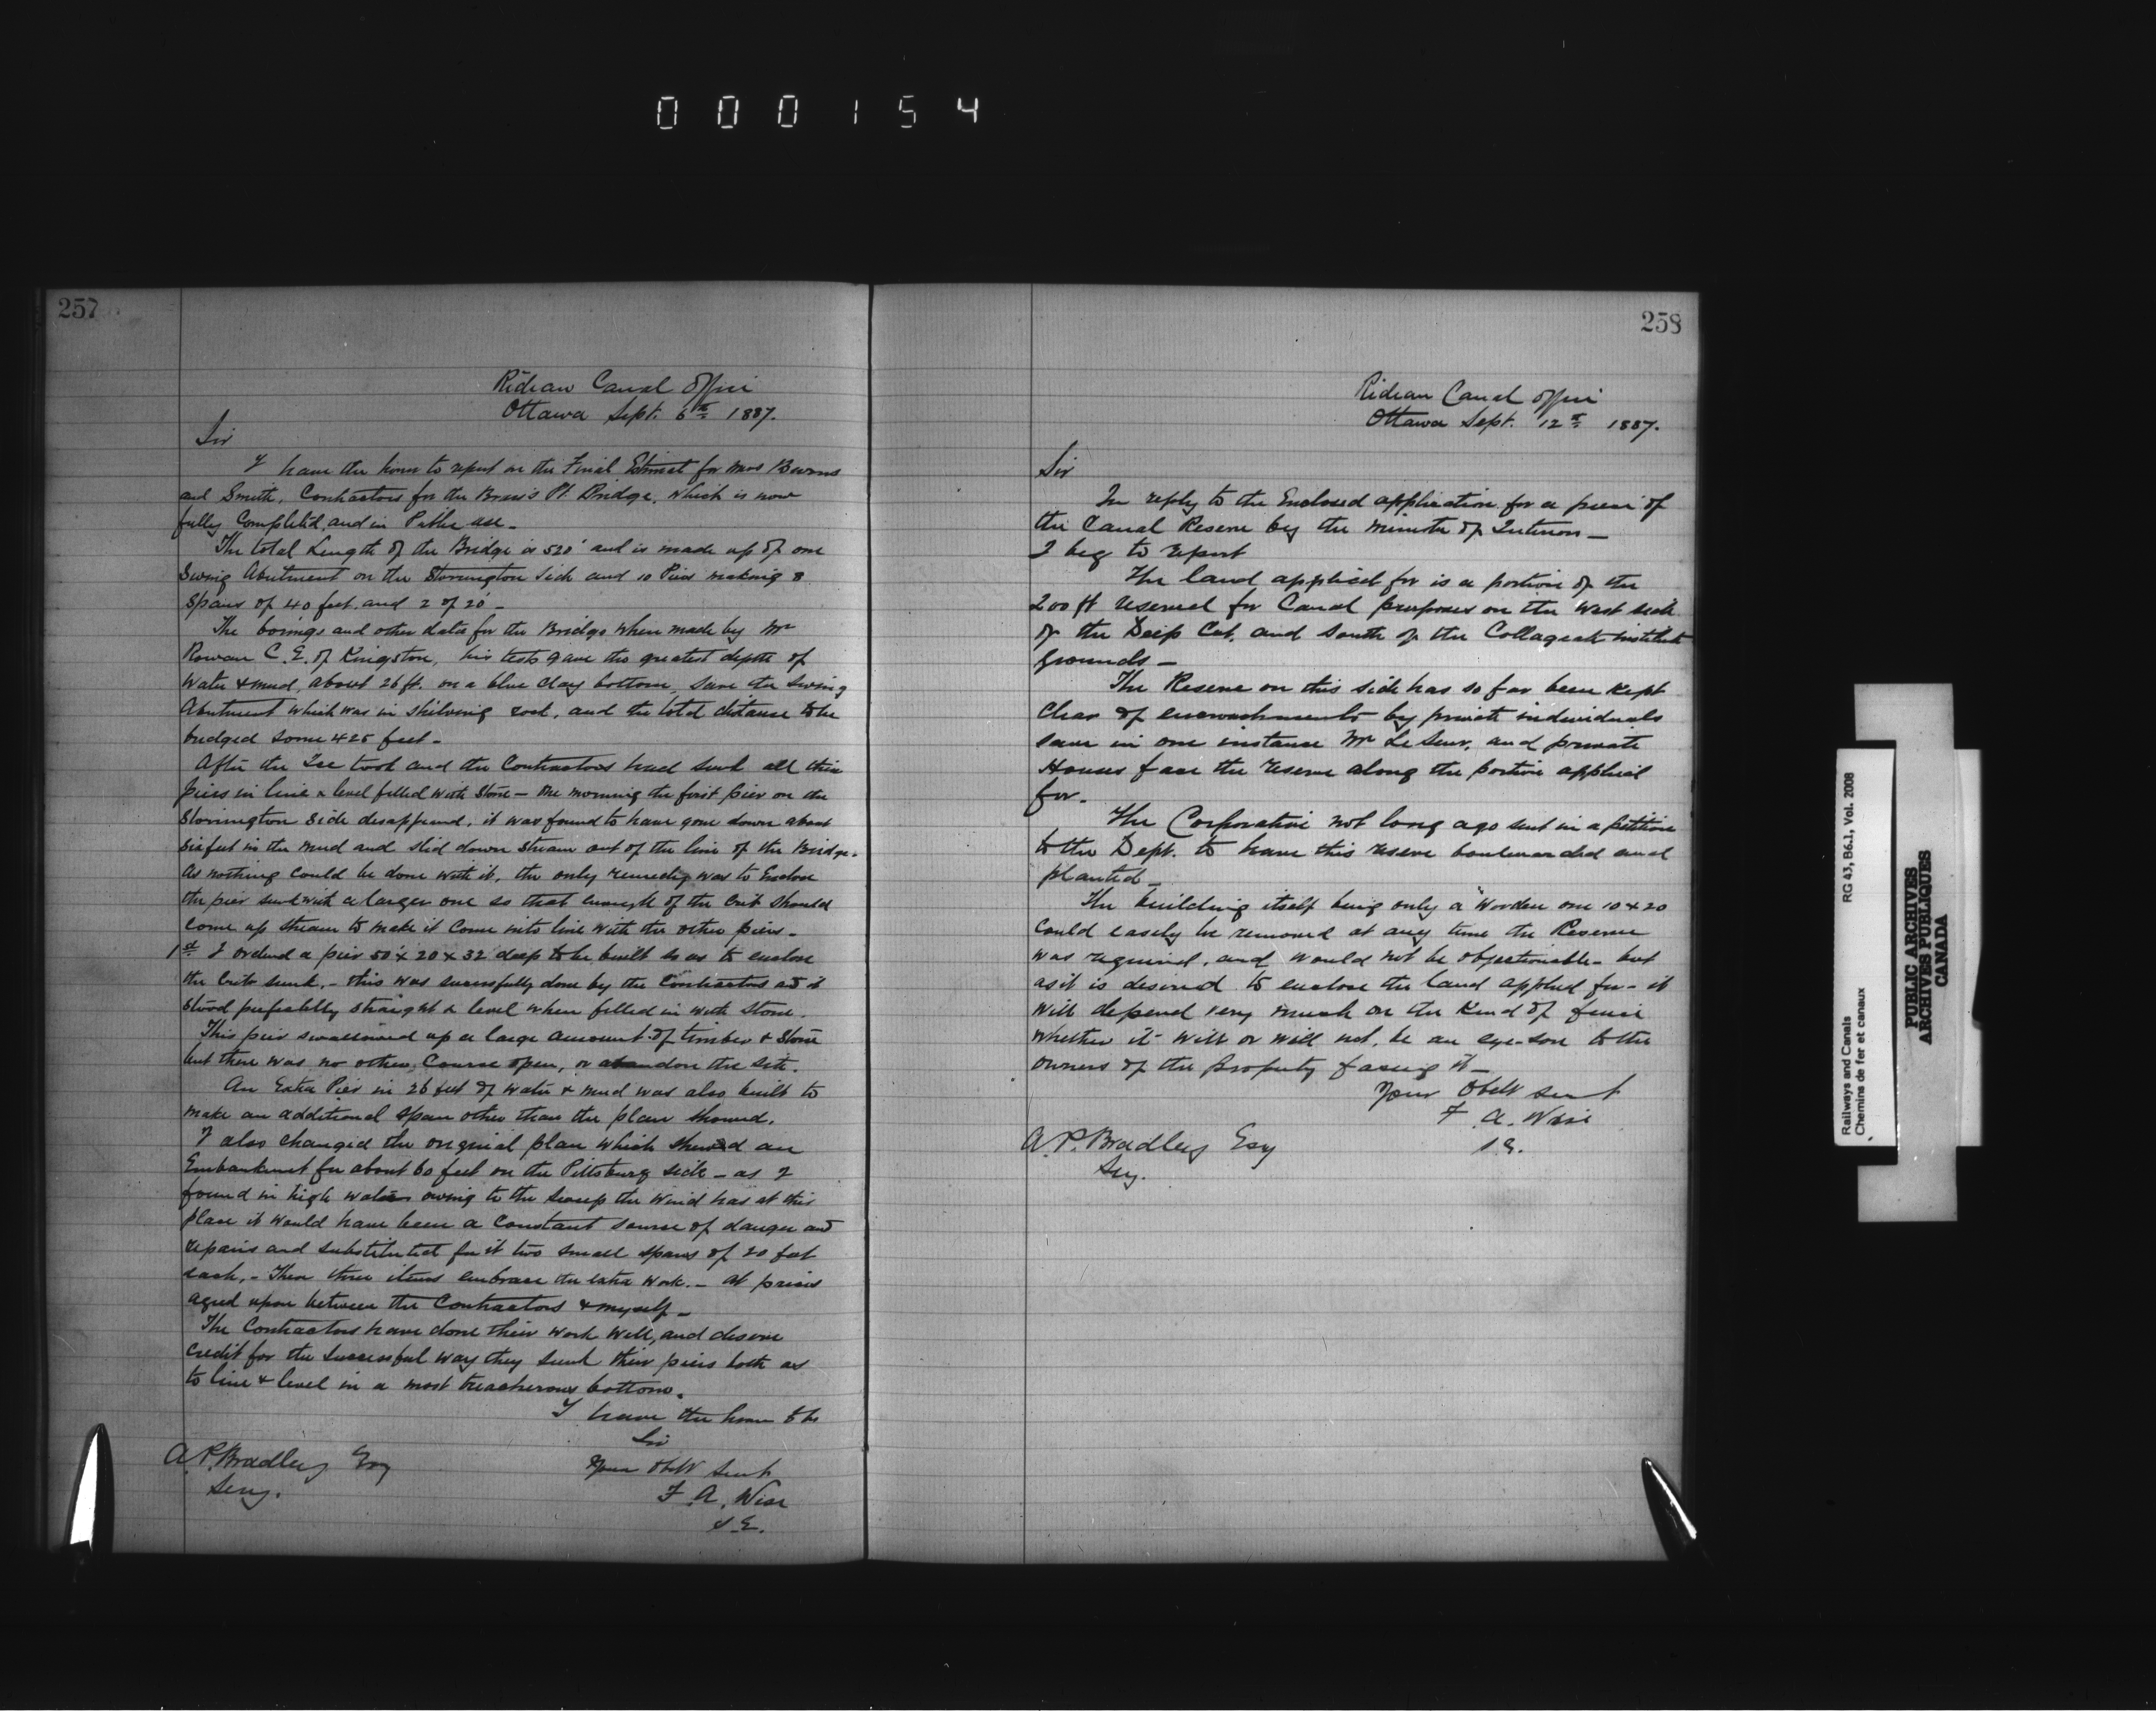 000154
257
Rideau Canal Office
Ottawa Sept. 6th 1887.
Sir
I have the honor to report on the Final Estimat for Mess
and Smith, Contractors for the Pt. Bridge, which is now
fully Completed, and in Public use_
The total Length of the Bridge is 520' and is made up of one
Swing Abutment on the Storrington side and 10 Piers making 8
Spans of 40 feet. and 2 of 20'_
The borings and other data for the Bridge when made by Mr
Rowan C. E. of Kingston, his tests gave the greatest depth of
Water & mud, about 26 ft. on a blue clay bottom, save the Swing
Abutment which was in shelving rock, and the total distance to be
bridged some 425 feet_
After the Ice took and the Contractors had sunk all their
piers in line & level filled with Stone_ One morning the first pier on the
Storrington Side disappeared, it was found to have gone down about
six feet in the mud and slid down stream out of the line of the Bridge.
As nothing could be done with it, the only remedy was to Enclose
the pier sunk with a larger one so that enough of the Crib should
come up stream to make it come into line with the other piers_
1st I ordered a pier 50' x 20 x 32' deep to be built so as to enclose
the Crib sunk,_ this was successfully done by the Contractors and it
stood perfectly straight & level when filled in with stone.
This pier swallowed up a large amount of timber & Stone
but there was no other Course open, or abandon the site.
An Extra Pier in 26 feet of water & mud was also built to
make an additional span other than the plan showed.
I also changed the original plan which showed an
Embankment for about 60 feet on the Pittsburg side_ as I
found in high water owing to the sweep the wind has at this
place it would have been a Constant source of danger and
repairs and substituted for it two small spans of 20 feet
each,_ These three items embrace the extra work._ at prices
agreed upon between the Contractors & myself_
The Contractors have done their work well, and deserve
credit for the successful way they sunk their piers both as
to line & level in a most treacherous bottom.
I have the honor to be
Sir
Your Obdt Servt
F. A. Wise
S.E.
A. P. Bradley Esq
Secy.
258
Rideau Canal Office
Ottawa Sept. 12th 1887.
Sir
In reply to the Enclosed application for a piece of
the Canal Reserve by the Minister of Interior_
I beg to report
The land applied for is a portion of the
200 ft reserved for Canal purposes on the West side
of the Deep Cut, and South of the Collageate institute
grounds_
The Reserve on this side has so far been kept
Clear of encroachments by private individuals
save in one instance Mr Le Seur, and private
Houses face the reserve along the portion applied
for_
The Corporation not long ago sent in a petition
to the Dept. to have this reserve boulevarded and
planted_
The building itself being only a Wooden one 10 x 20
could easily be removed at any time the Reserve
was required, and would not be objectionable_ but
as it is desired to enclose the land applied for_ it
will depend very much on the kind of fence
whether it will or will not, be an eye-sore to the
owners of the property facing it_
Your Obdt Servt
F. A. Wise
S.E.
A. P. Bradley Esq
Secy.
Railways and Canals
Chemins de fer et canaux
RG 43, B6.1, Vol. 2008
PUBLIC ARCHIVES
ARCHIVES PUBLIQUES
CANADA